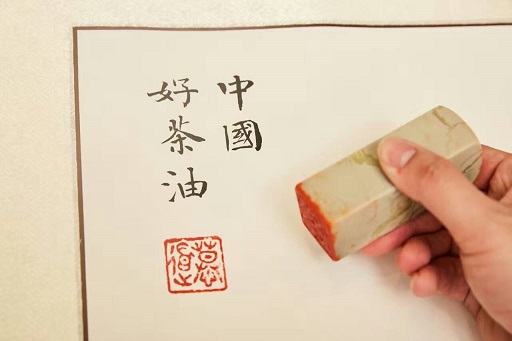 中國
好茶油